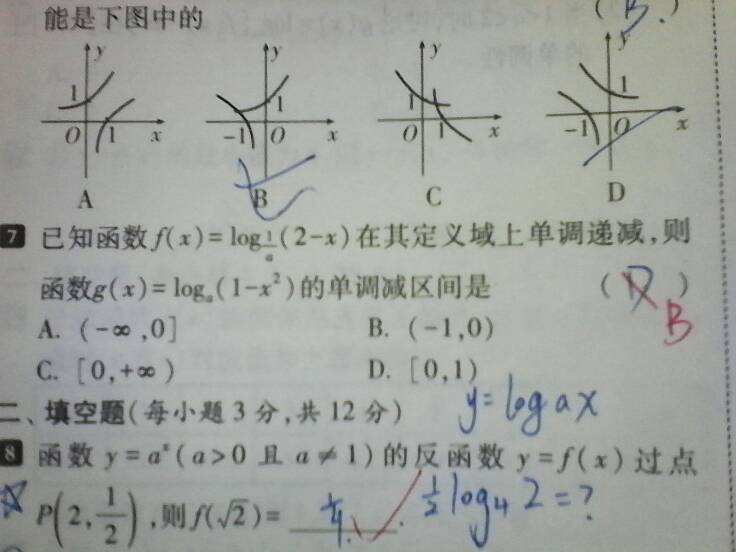 能是下图中的 ( B. )
y 1 O 1 x y 1 -1 O x y 1 O 1 x y 1 -1 O x
A B C D
7 已知函数f(x)=log_{1/a}(2-x)在其定义域上单调递减,则
函数g(x)=log_a(1-x²)的单调减区间是 ( D )
B
A. (-∞,0] B. (-1,0)
C. [0,+∞) D. [0,1)
二、填空题(每小题3分,共12分) y=logax
8 函数 y=aˣ(a>0 且 a≠1)的反函数 y=f(x)过点
P(2,1/2),则f(√2)= 1/4. 1/2 log₄2=?